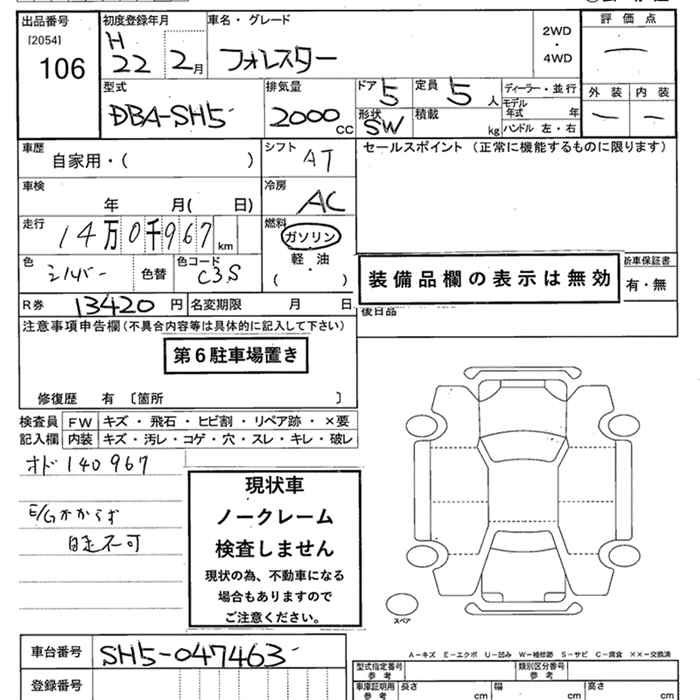 出品番号
[2054]
106
初度登録年月
H
22 2月
車名・グレード
フォレスター
2WD
・
4WD
評価点
—
外装 内装
— —
型式
DBA-SH5
排気量
2000 CC
ドア 5
形状 SW
定員 5 人
積載 kg
ディーラー・並行
モデル年式 年
ハンドル 左・右
車歴
自家用・( )
シフト AT
セールスポイント (正常に機能するものに限ります)
車検
年 月( 日)
冷房
AC
走行
14万0千967 km
燃料
ガソリン
軽油
・
( )
色
シルバー 色替
色コード
C3S
装備品欄の表示は無効
新車保証書
有・無
R券 13420 円 名変期限 月 日
後日品
注意事項申告欄(不具合内容等は具体的に記入して下さい)
第6駐車場置き
修復歴 有 〔箇所 〕
検査員 FW キズ・飛石・ヒビ割・リペア跡・×要
記入欄 内装 キズ・汚レ・コゲ・穴・スレ・キレ・破レ
オド140967
E/Gかからず
自走不可
現状車
ノークレーム
検査しません
現状の為、不動車になる
場合もありますので
ご注意ください。
スペア
車台番号 SH5-047463
登録番号
A-キズ E-エクボ U-凹み W-補修跡 S-サビ C-腐食 ××-交換済
型式指定番号
参考
類別区分番号
参考
車庫証明用
参考
長さ cm
幅 cm
高さ cm